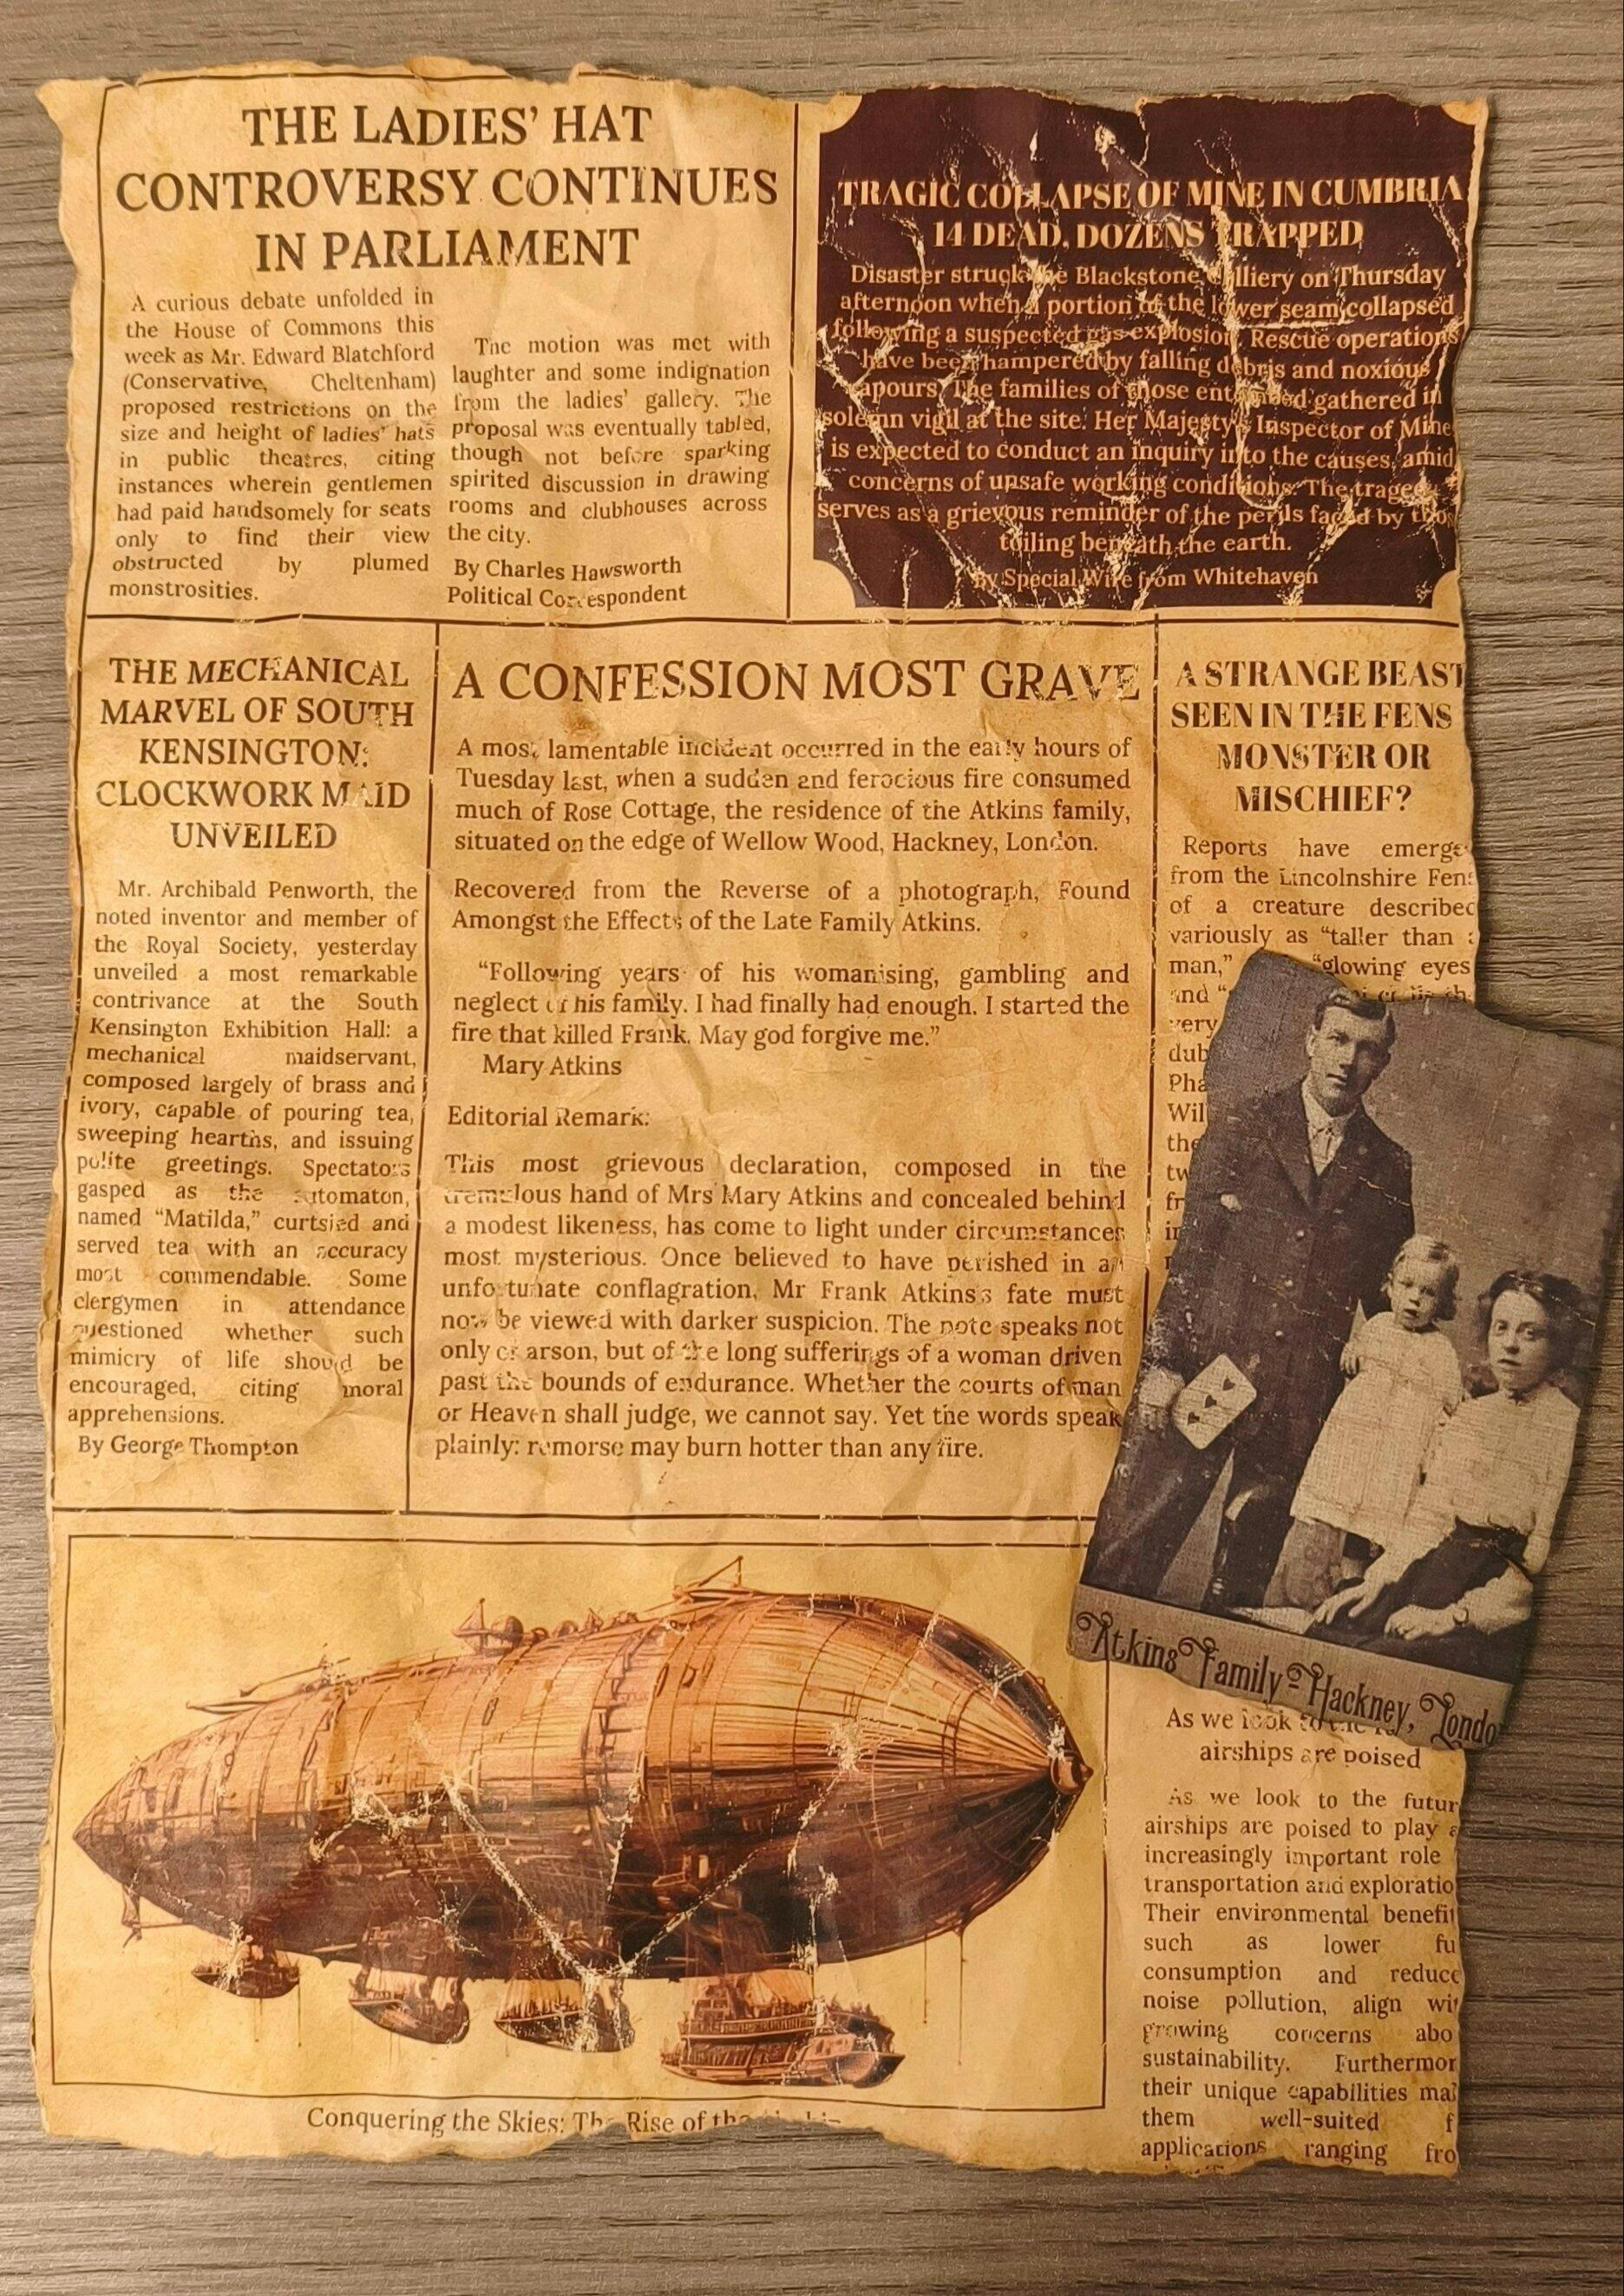 THE LADIES' HAT
CONTROVERSY CONTINUES
IN PARLIAMENT
A curious debate unfolded in
the House of Commons this
week as Mr. Edward Blatchford
(Conservative, Cheltenham)
proposed restrictions on the
size and height of ladies' hats
in public theatres, citing
instances wherein gentlemen
had paid handsomely for seats
only to find their view
obstructed by plumed
monstrosities.
The motion was met with
laughter and some indignation
from the ladies' gallery. The
proposal was eventually tabled,
though not before sparking
spirited discussion in drawing
rooms and clubhouses across
the city.
By Charles Hawsworth
Political Correspondent
TRAGIC COLLAPSE OF MINE IN CUMBRIA
14 DEAD, DOZENS TRAPPED
Disaster struck the Blackstone Colliery on Thursday
afternoon when a portion of the lower seam collapsed
following a suspected gas explosion. Rescue operations
have been hampered by falling debris and noxious
vapours. The families of those entombed gathered in
solemn vigil at the site. Her Majesty's Inspector of Mine
is expected to conduct an inquiry into the causes, amid
concerns of unsafe working conditions. The traged
serves as a grievous reminder of the perils faced by thos
toiling beneath the earth.
By Special Wire from Whitehaven
THE MECHANICAL
MARVEL OF SOUTH
KENSINGTON:
CLOCKWORK MAID
UNVEILED
Mr. Archibald Penworth, the
noted inventor and member of
the Royal Society, yesterday
unveiled a most remarkable
contrivance at the South
Kensington Exhibition Hall: a
mechanical maidservant,
composed largely of brass and
ivory, capable of pouring tea,
sweeping hearths, and issuing
polite greetings. Spectators
gasped as the automaton,
named "Matilda," curtsied and
served tea with an accuracy
most commendable. Some
clergymen in attendance
questioned whether such
mimicry of life should be
encouraged, citing moral
apprehensions.
By George Thompton
A CONFESSION MOST GRAVE
A most lamentable incident occurred in the early hours of
Tuesday last, when a sudden and ferocious fire consumed
much of Rose Cottage, the residence of the Atkins family,
situated on the edge of Wellow Wood, Hackney, London.
Recovered from the Reverse of a photograph, Found
Amongst the Effects of the Late Family Atkins.
"Following years of his womanising, gambling and
neglect of his family. I had finally had enough. I started the
fire that killed Frank. May god forgive me."
Mary Atkins
Editorial Remark:
This most grievous declaration, composed in the
tremulous hand of Mrs Mary Atkins and concealed behind
a modest likeness, has come to light under circumstances
most mysterious. Once believed to have perished in an
unfortunate conflagration, Mr Frank Atkins's fate must
now be viewed with darker suspicion. The note speaks not
only of arson, but of the long sufferings of a woman driven
past the bounds of endurance. Whether the courts of man
or Heaven shall judge, we cannot say. Yet the words speak
plainly: remorse may burn hotter than any fire.
A STRANGE BEAST
SEEN IN THE FENS
MONSTER OR
MISCHIEF?
Reports have emerge
from the Lincolnshire Fens
of a creature described
variously as "taller than a
man," "glowing eyes
and
very
dub
Pha
Wil
the
tw
fr
in
Atkins Family - Hackney, Londo
As we look to the
airships are poised
As we look to the futur
airships are poised to play a
increasingly important role
transportation and exploratio
Their environmental benefit
such as lower fu
consumption and reduce
noise pollution, align wit
growing concerns abo
sustainability. Furthermor
their unique capabilities mak
them well-suited f
applications ranging fro
Conquering the Skies: The Rise of the